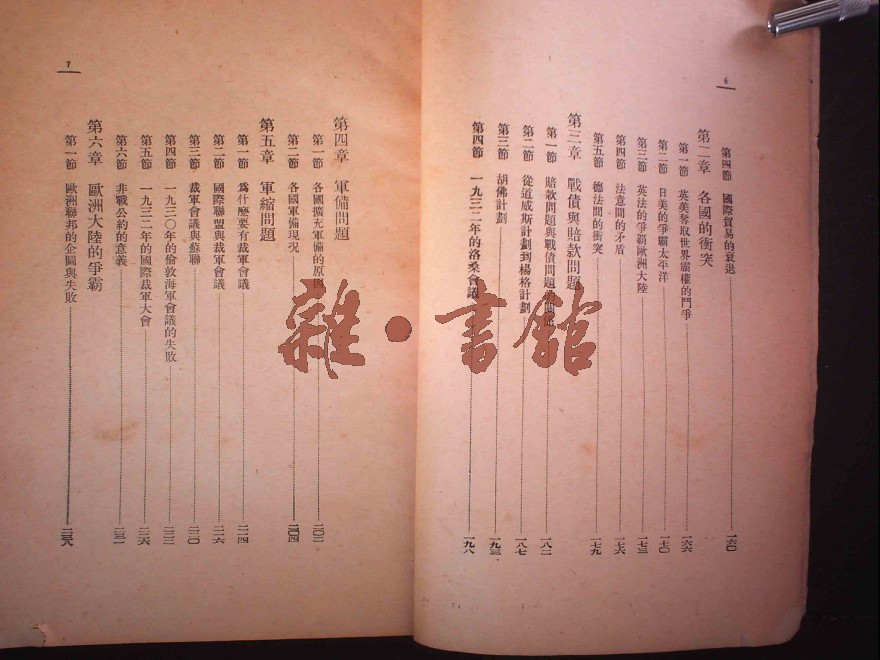 6
第四節 國際貿易的衰退 一六〇
第二章 各國的衝突
第一節 英美奪取世界霸權的鬥爭 一六六
第二節 日美的爭霸太平洋 一七〇
第三節 英法的爭霸歐洲大陸 一七三
第四節 法意間的矛盾 一七六
第五節 德法間的衝突 一七九
第三章 戰債與賠款問題
第一節 賠款問題與戰債問題的關係 一八二
第二節 從道威斯計劃到楊格計劃 一八七
第三節 胡佛計劃 一九三
第四節 一九三二年的洛桑會議 一九八
7
第四章 軍備問題
第一節 各國擴充軍備的原因 二〇二
第二節 各國軍備現況 二〇四
第五章 軍縮問題
第一節 爲什麼要有裁軍會議 二一四
第二節 國際聯盟與裁軍會議 二一六
第三節 裁軍會議與蘇聯 二二〇
第四節 一九三〇年的倫敦海軍會議的失敗 二二三
第五節 一九三二年的國際裁軍大會 二二六
第六節 非戰公約的意義 二三一
第六章 歐洲大陸的爭霸
第一節 歐洲聯邦的企圖與失敗
雜·書館